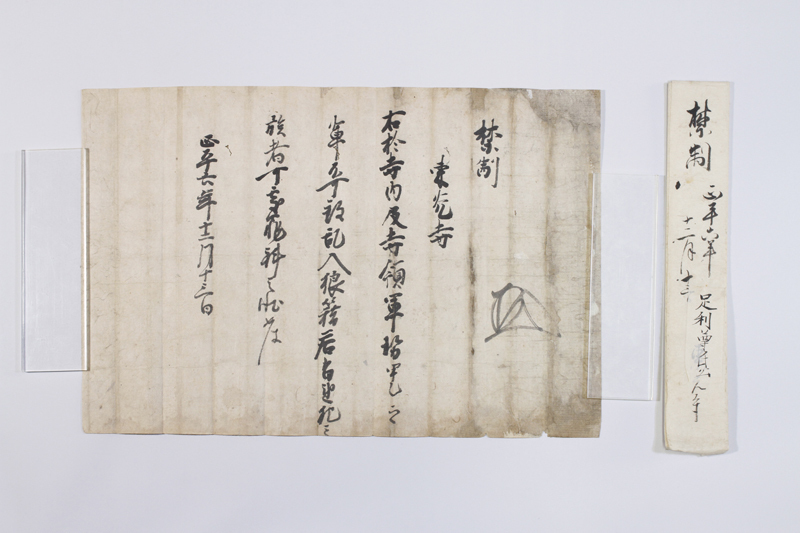 禁制
東光寺
右於寺内及寺領軍勢甲乙之
輩不可致乱入狼籍若有違犯之
族者可處罪科之状如件
正平六年十二月十三日
禁制
正平六年
十二月十三
足利尊氏